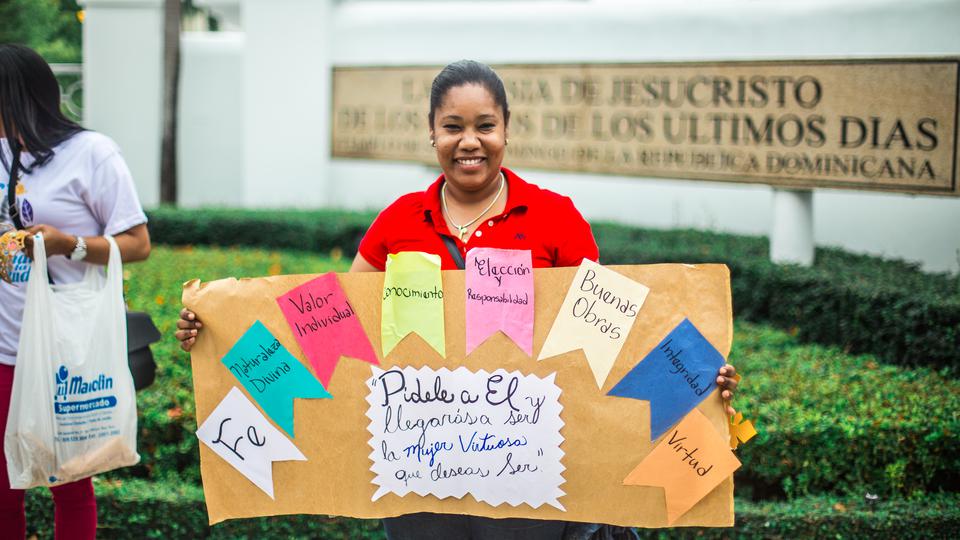 DE JESUCRISTO
DE LOS DE LOS ULTIMOS DIAS
DE LA REPUBLICA DOMINICANA
Fe
Naturaleza
Divina
Valor
Individual
Conocimiento
Elección
y
Responsabilidad
Buenas
Obras
Integridad
Virtud
"Pídele a El y
llegarás a ser
la mujer Virtuosa
que deseas Ser."
Supermercado